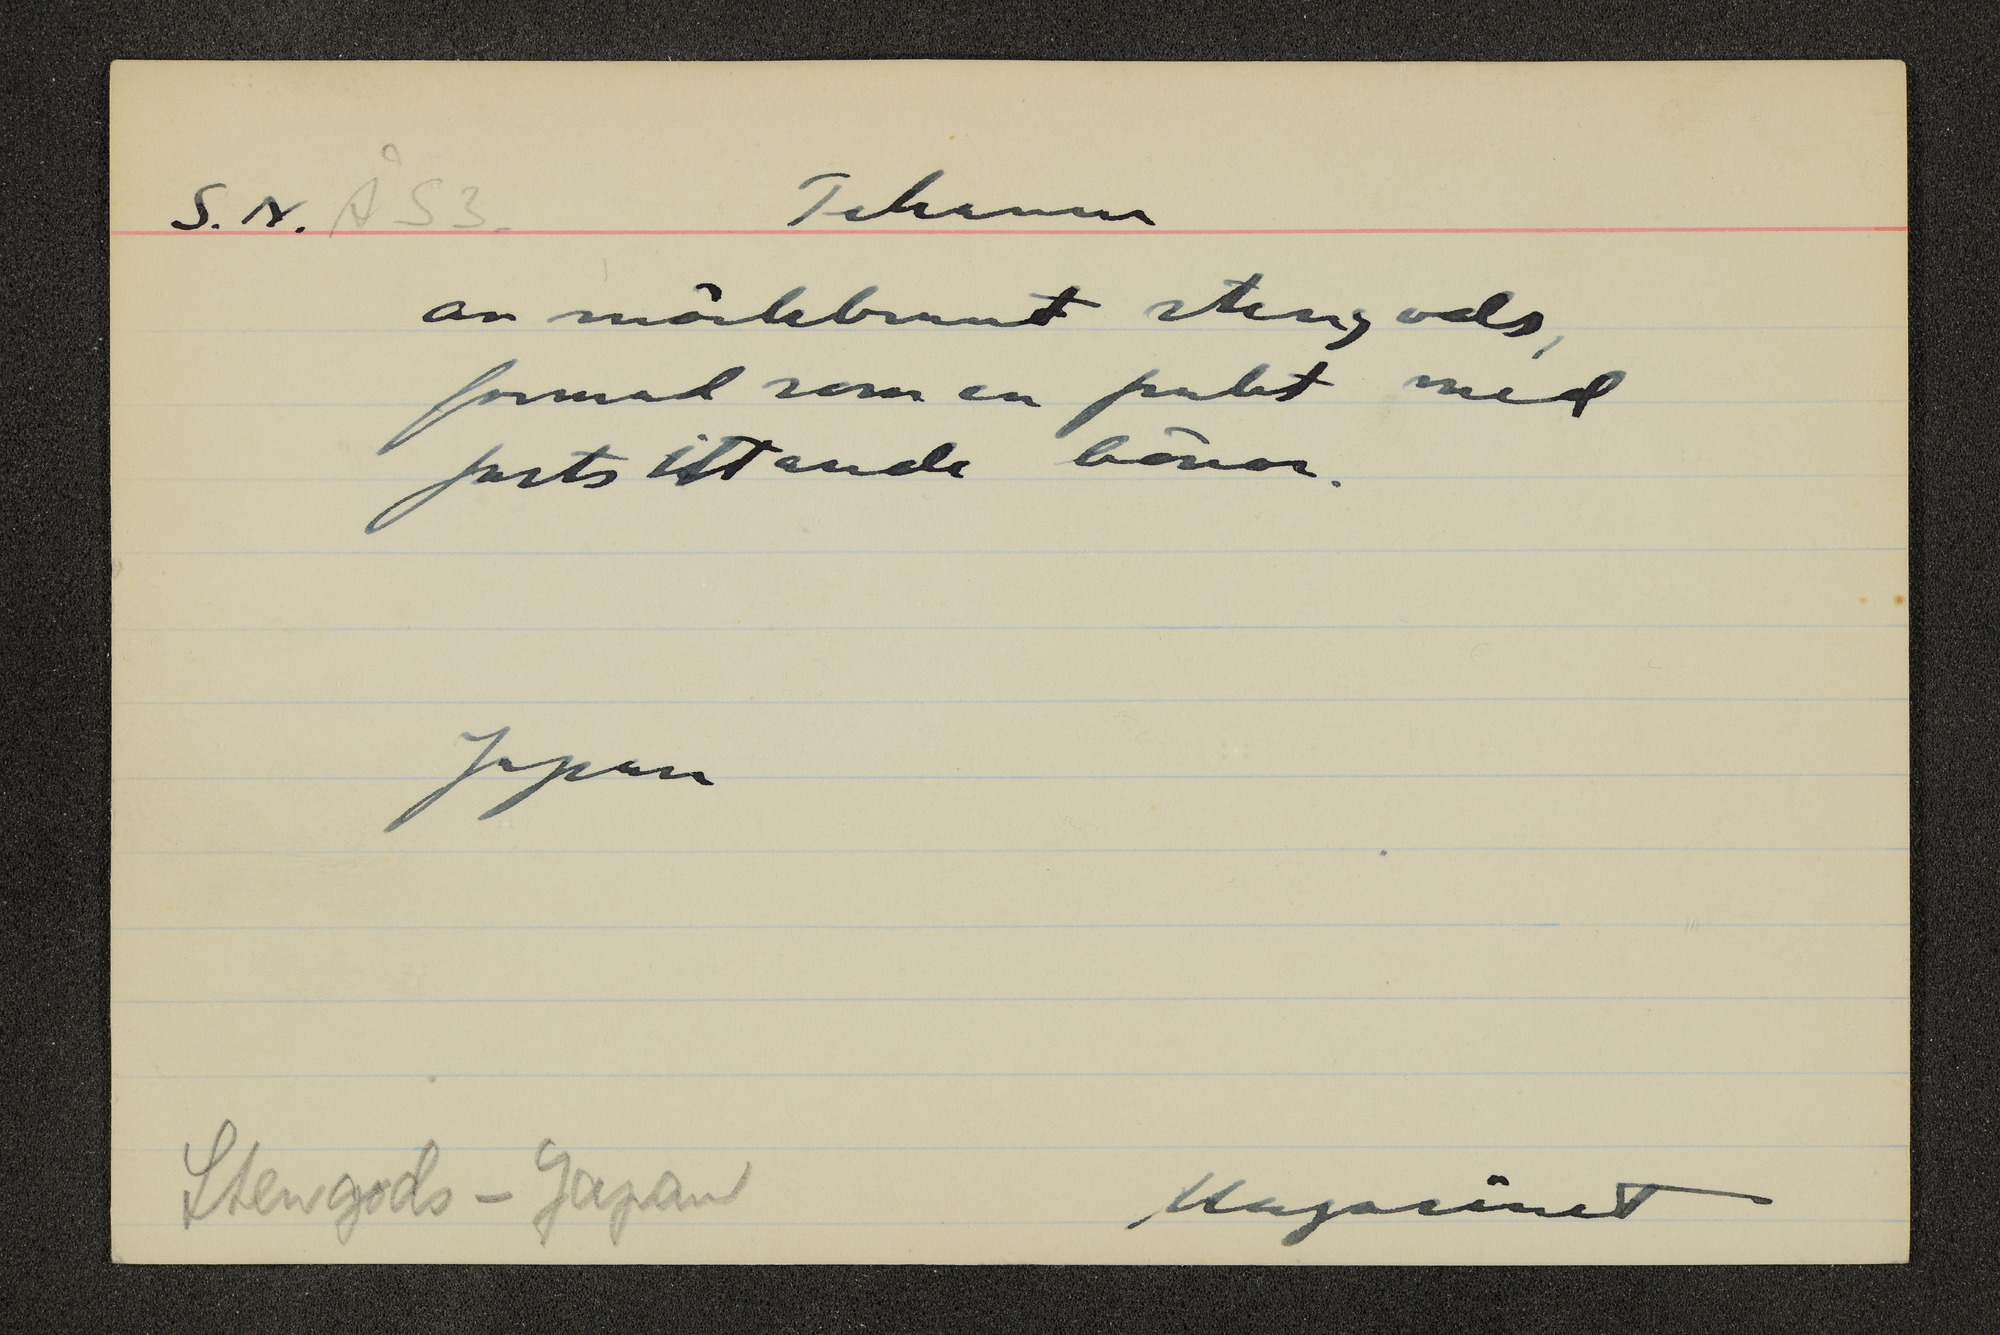 S. N. ÅS3. Tekanna
av mörkbrunt stengods,
formad som en frukt med
fastsittande bönor.
Japan
Stengods - Japan
Magasinet